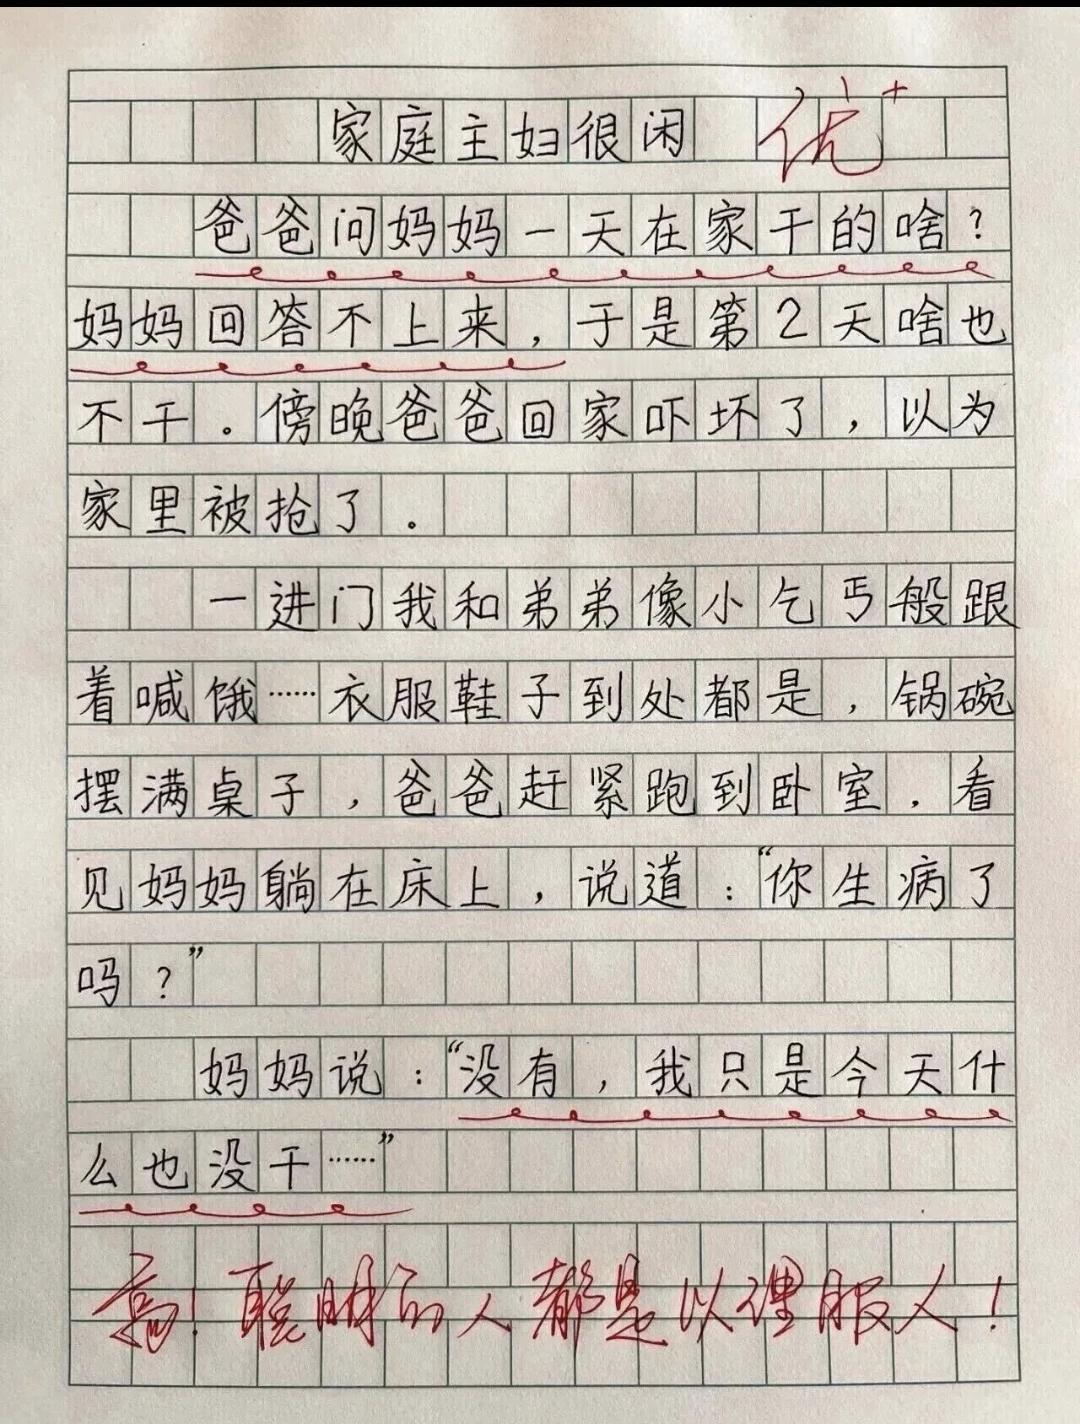 家庭主妇很闲 优+
爸爸问妈妈一天在家干的啥？
妈妈回答不上来，于是第2天啥也
不干。傍晚爸爸回家吓坏了，以为
家里被抢了。
一进门我和弟弟像小乞丐般跟
着喊饿……衣服鞋子到处都是，锅碗
摆满桌子，爸爸赶紧跑到卧室，看
见妈妈躺在床上，说道：“你生病了
吗？”
妈妈说：“没有，我只是今天什
么也没干……”
高！聪明的人都是以理服人！